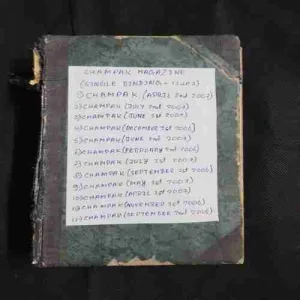 CHAMPAK MAGAZINE
(SINGLE BINDING -
1) CHAMPAK (APRIL 2nd 2007)
2) CHAMPAK (JULY 2nd 2007)
3) CHAMPAK (JUNE 1st
4) CHAMPAK (DECEMBER 1st 2006)
5) CHAMPAK (JUNE 2nd 2007)
6) CHAMPAK (FEBRUARY 2nd
7) CHAMPAK (JULY 1st
8) CHAMPAK (SEPTEMBER 1st 2006)
9) CHAMPAK (MAY 1st 2007)
10) CHAMPAK (APRIL 1st
11) CHAMPAK (NOVEMBER 1st 2006)
12) CHAMPAK (SEPTEMBER 2nd 2006)